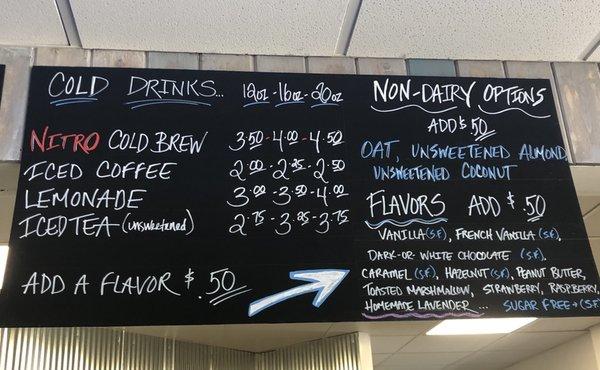 COLD DRINKS... 12oz-16oz-20oz
NITRO COLD BREW 3.50-4.00-4.50
ICED COFFEE 2.00-2.25-2.50
LEMONADE 3.00-3.50-4.00
ICED TEA (unsweetened) 2.75-3.25-3.75
ADD A FLAVOR $.50
NON-DAIRY OPTIONS
ADD $.50
OAT, UNSWEETENED ALMOND,
UNSWEETENED COCONUT
FLAVORS ADD $.50
VANILLA (S.F), FRENCH VANILLA (S.F),
DARK-OR WHITE CHOCOLATE (S.F),
CARAMEL (S.F), HAZELNUT (S.F), PEANUT BUTTER,
TOASTED MARSHMALLOW, STRAWBERRY, RASPBERRY,
HOMEMADE LAVENDER ... SUGAR FREE→(S.F)